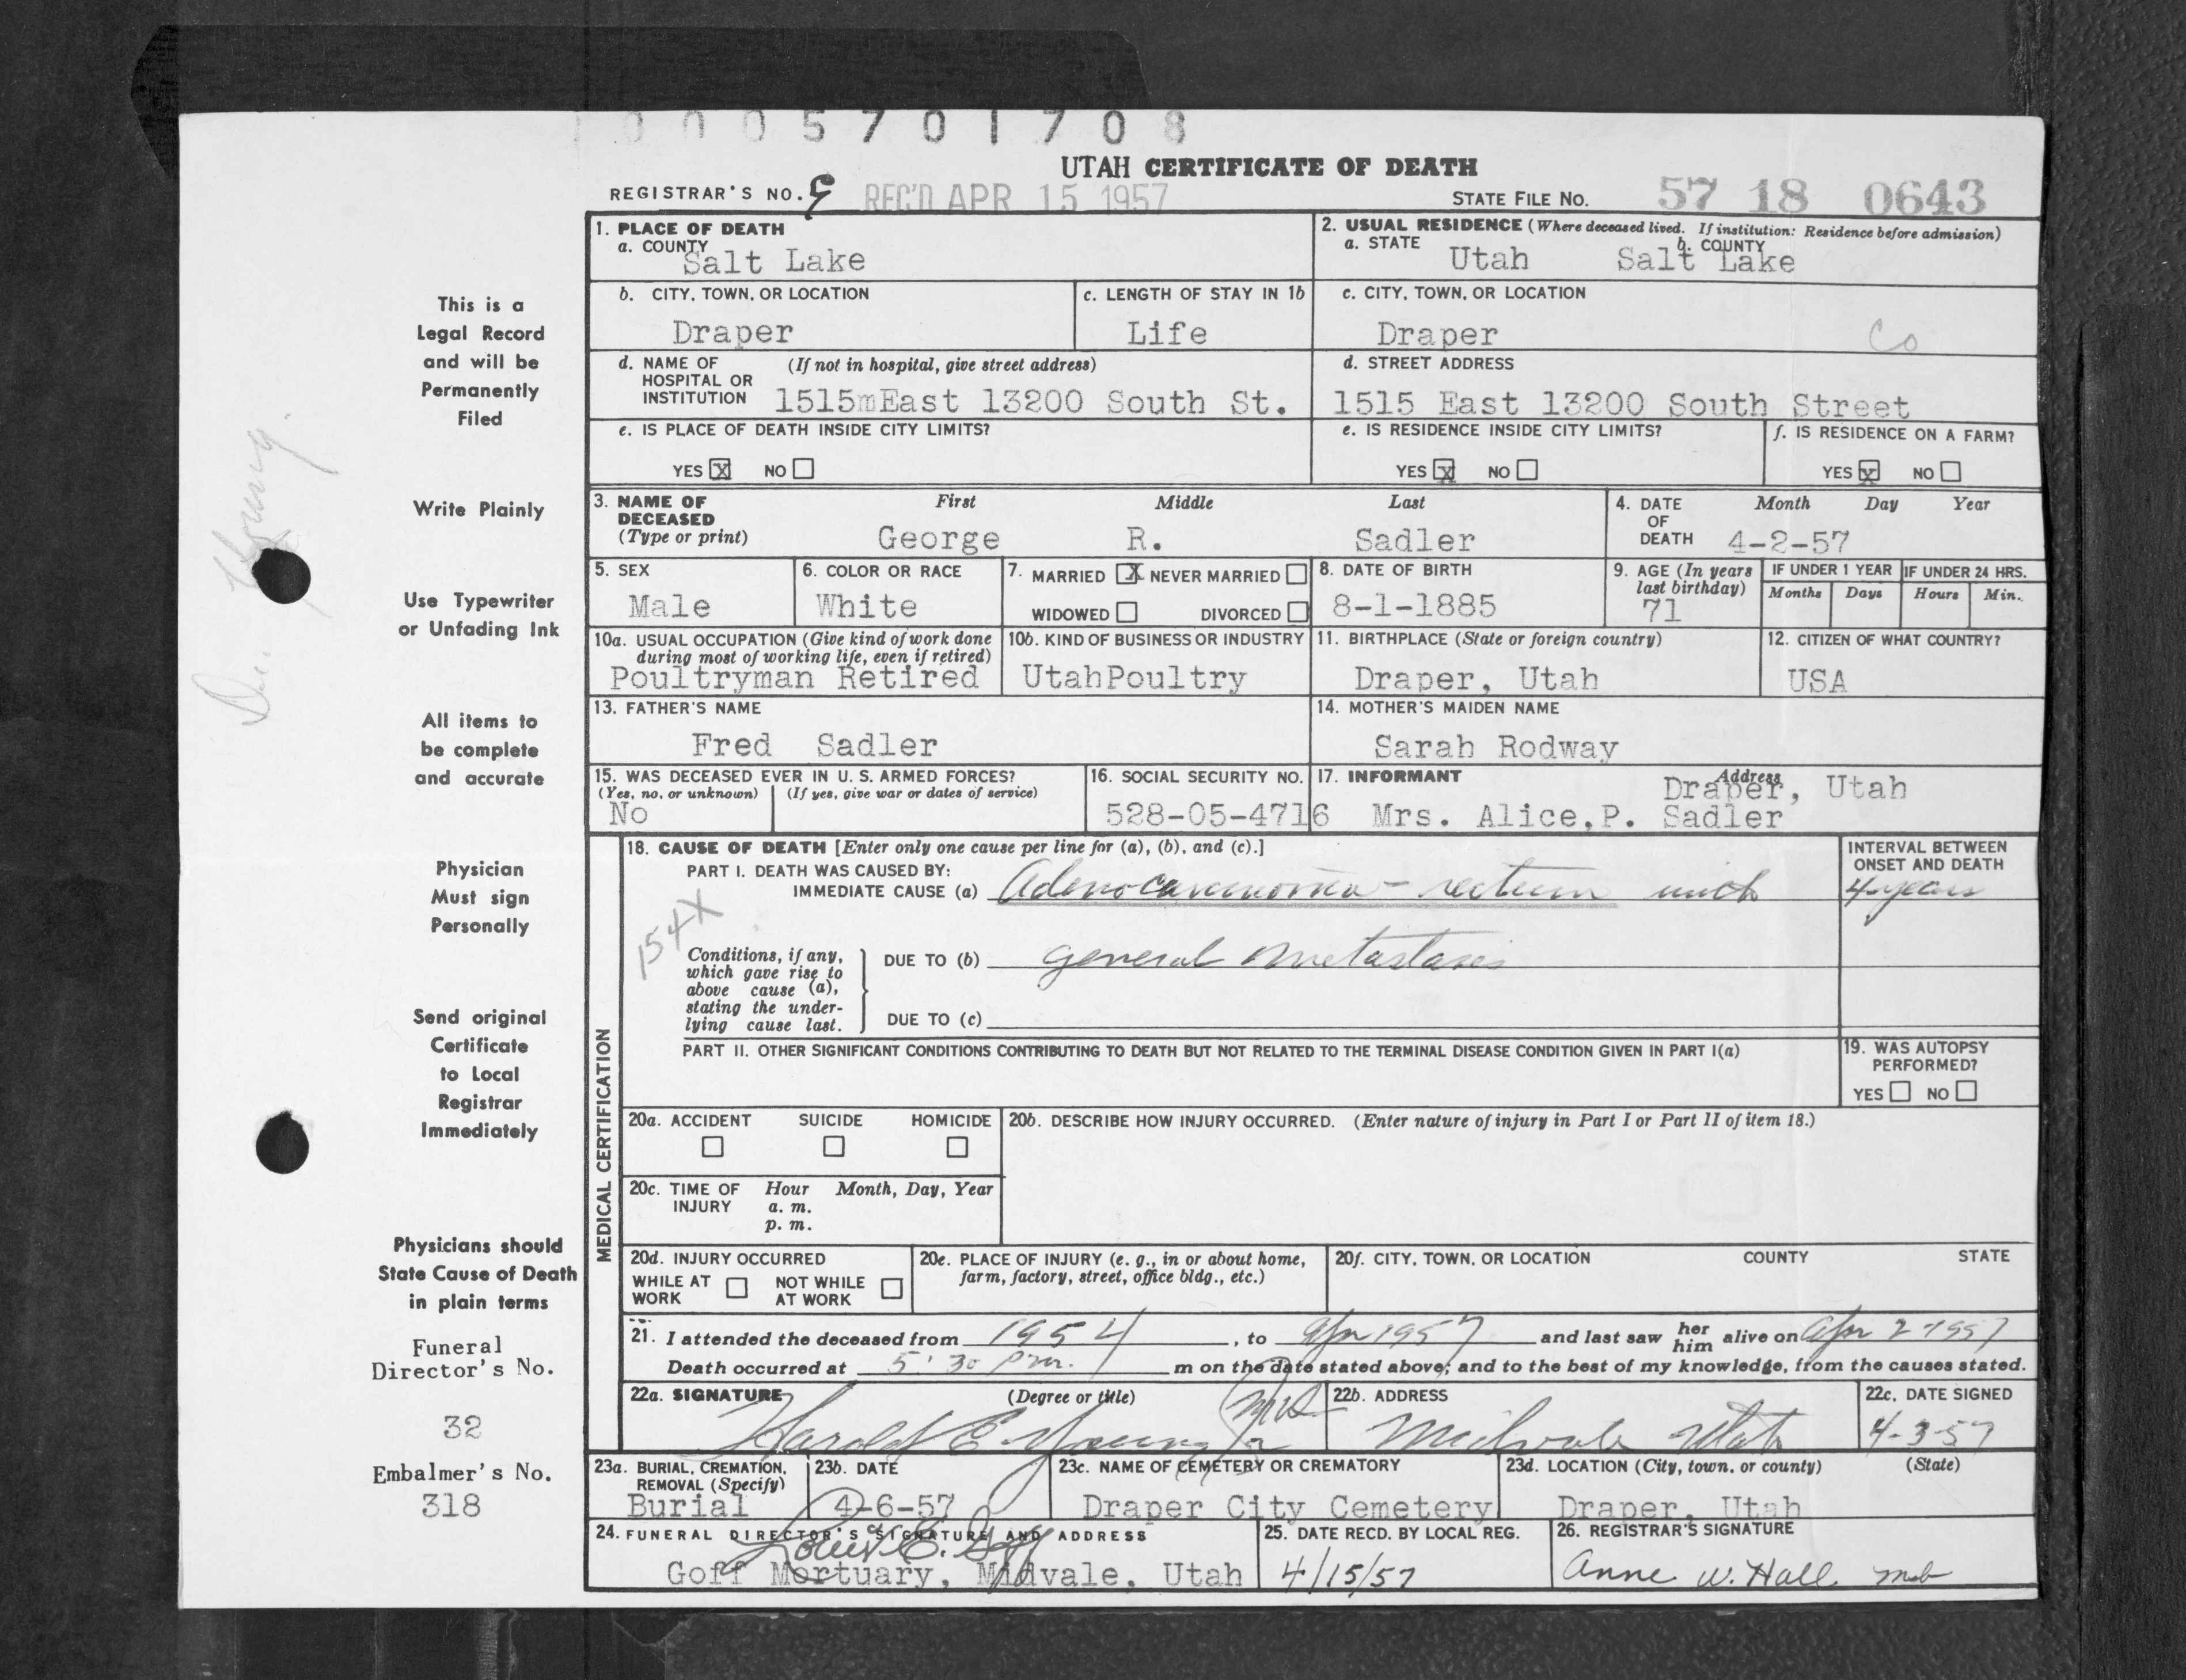 0005701708
UTAH CERTIFICATE OF DEATH
REGISTRAR'S NO. 9 REC'D APR 15 1957 STATE FILE NO. 57 18 0643
1. PLACE OF DEATH
a. COUNTY
Salt Lake
2. USUAL RESIDENCE (Where deceased lived. If institution: Residence before admission)
a. STATE b. COUNTY
Utah Salt Lake
b. CITY, TOWN, OR LOCATION
Draper
c. LENGTH OF STAY IN 1b
Life
c. CITY, TOWN, OR LOCATION
Draper Co
d. NAME OF (If not in hospital, give street address)
HOSPITAL OR
INSTITUTION 1515mEast 13200 South St.
d. STREET ADDRESS
1515 East 13200 South Street
e. IS PLACE OF DEATH INSIDE CITY LIMITS?
YES X NO
e. IS RESIDENCE INSIDE CITY LIMITS?
YES X NO
f. IS RESIDENCE ON A FARM?
YES X NO
3. NAME OF DECEASED (Type or print)
First Middle Last
George R. Sadler
4. DATE OF DEATH Month Day Year
4-2-57
5. SEX
Male
6. COLOR OR RACE
White
7. MARRIED X NEVER MARRIED
WIDOWED DIVORCED
8. DATE OF BIRTH
8-1-1885
9. AGE (In years last birthday)
71
IF UNDER 1 YEAR IF UNDER 24 HRS.
Months Days Hours Min.
10a. USUAL OCCUPATION (Give kind of work done
during most of working life, even if retired)
Poultryman Retired
10b. KIND OF BUSINESS OR INDUSTRY
UtahPoultry
11. BIRTHPLACE (State or foreign country)
Draper, Utah
12. CITIZEN OF WHAT COUNTRY?
USA
13. FATHER'S NAME
Fred Sadler
14. MOTHER'S MAIDEN NAME
Sarah Rodway
15. WAS DECEASED EVER IN U. S. ARMED FORCES?
(Yes, no, or unknown) (If yes, give war or dates of service)
No
16. SOCIAL SECURITY NO.
528-05-4716
17. INFORMANT Address
Draper, Utah
Mrs. Alice,P. Sadler
MEDICAL CERTIFICATION
18. CAUSE OF DEATH [Enter only one cause per line for (a), (b), and (c).]
PART I. DEATH WAS CAUSED BY:
IMMEDIATE CAUSE (a) Adenocarcinoma - rectum with
INTERVAL BETWEEN
ONSET AND DEATH
4 years
154X
Conditions, if any,
which gave rise to
above cause (a),
stating the under-
lying cause last.
DUE TO (b) general metastases
DUE TO (c)
PART II. OTHER SIGNIFICANT CONDITIONS CONTRIBUTING TO DEATH BUT NOT RELATED TO THE TERMINAL DISEASE CONDITION GIVEN IN PART I(a)
19. WAS AUTOPSY
PERFORMED?
YES NO
20a. ACCIDENT SUICIDE HOMICIDE
20b. DESCRIBE HOW INJURY OCCURRED. (Enter nature of injury in Part I or Part II of item 18.)
20c. TIME OF INJURY Hour Month, Day, Year
a. m.
p. m.
20d. INJURY OCCURRED
WHILE AT WORK NOT WHILE AT WORK
20e. PLACE OF INJURY (e. g., in or about home,
farm, factory, street, office bldg., etc.)
20f. CITY, TOWN, OR LOCATION COUNTY STATE
21. I attended the deceased from 1954, to Apr 1957 and last saw her him alive on Apr 2 1957
Death occurred at 5:30 Pm. m on the date stated above; and to the best of my knowledge, from the causes stated.
22a. SIGNATURE (Degree or title)
Harold E. Young Jr MD
22b. ADDRESS
Midvale Utah
22c. DATE SIGNED
4-3-57
23a. BURIAL, CREMATION,
REMOVAL (Specify)
Burial
23b. DATE
4-6-57
23c. NAME OF CEMETERY OR CREMATORY
Draper City Cemetery
23d. LOCATION (City, town, or county) (State)
Draper, Utah
24. FUNERAL DIRECTOR'S SIGNATURE AND ADDRESS
Louis E. Goff
Goff Mortuary, Midvale, Utah
25. DATE RECD. BY LOCAL REG.
4/15/57
26. REGISTRAR'S SIGNATURE
Anne W. Hall
This is a
Legal Record
and will be
Permanently
Filed
Write Plainly
Use Typewriter
or Unfading Ink
All items to
be complete
and accurate
Physician
Must sign
Personally
Send original
Certificate
to Local
Registrar
Immediately
Physicians should
State Cause of Death
in plain terms
Funeral
Director's No.
32
Embalmer's No.
318
Dr. Young